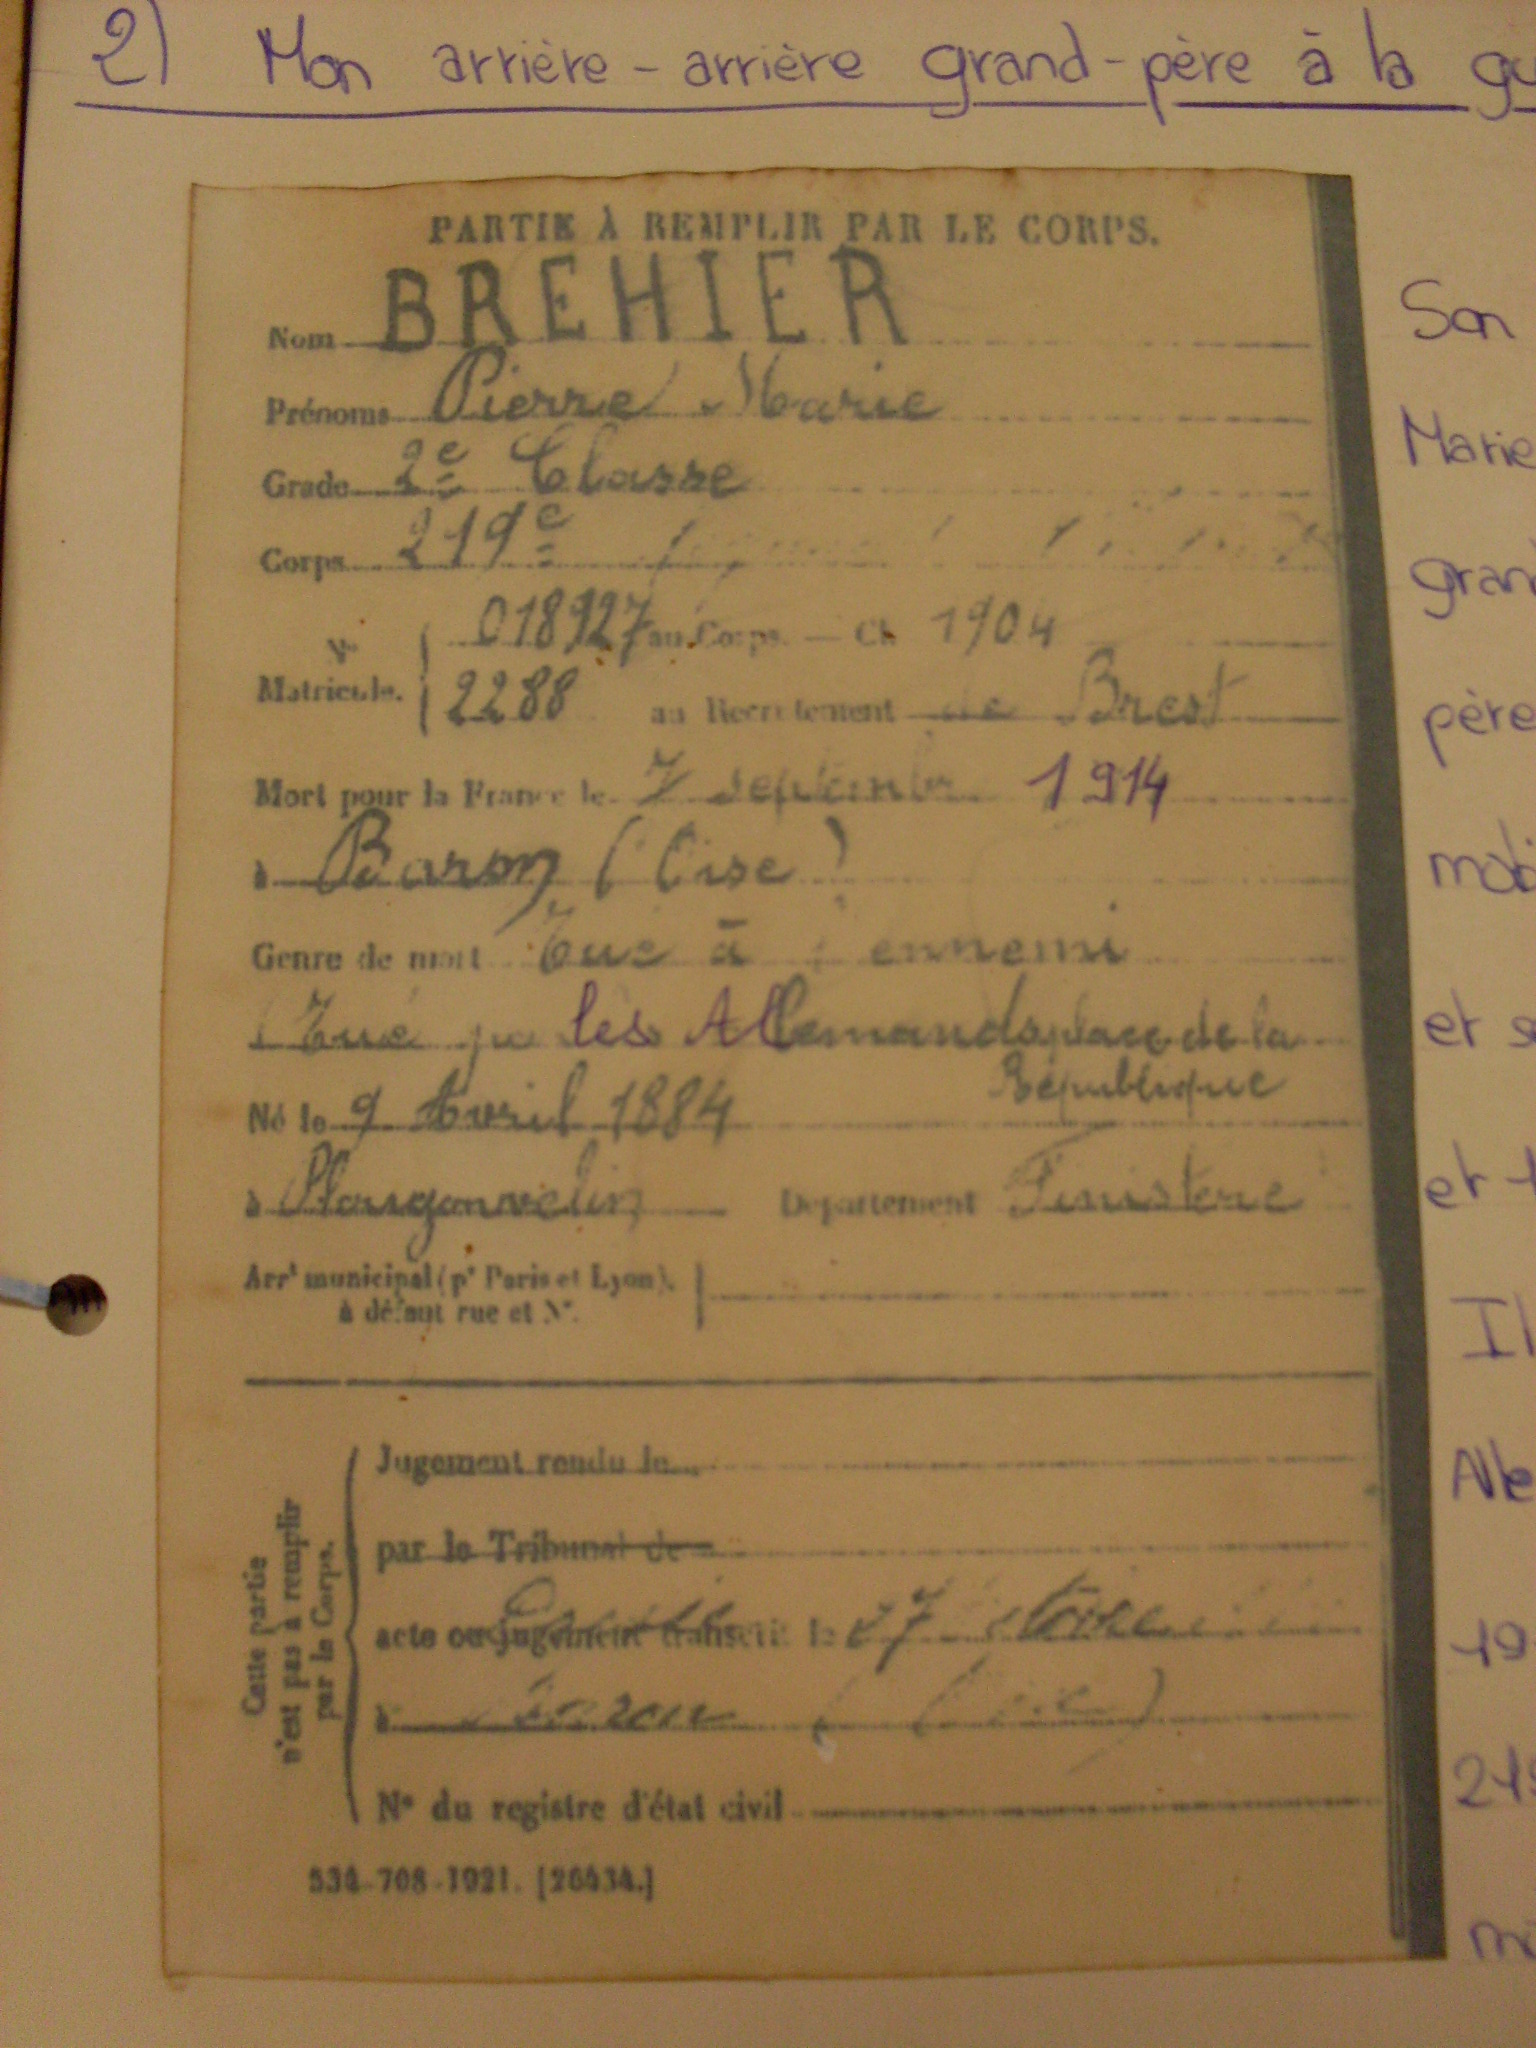 2) Mon arrière-arrière grand-père à la gu
PARTIE À REMPLIR PAR LE CORPS.
Nom BREHIER
Prénoms Pierre Marie
Grade 2e Classe
Corps 219e
No Matricule. 018927 au Corps. — Cl. 1904
2288 au Recrutement de Brest
Mort pour la France le 7 septembre 1914
à Baron (Oise)
Genre de mort Tué à l'ennemi
(Tué par les Allemands place de la
République
Né le 9 Avril 1884
à Plougonvelin Département Finistère
Arrt municipal (pr Paris et Lyon),
à défaut rue et No.
Cette partie
n'est pas à remplir
par le Corps.
Jugement rendu le
par le Tribunal de
acte ou jugement transcrit le 27
à Baron (Oise)
No du registre d'état civil
534-708-1921. [26434.]
Son
Marie
grand
père
mobi
et s
et t
Il
Alle
19
219
mo